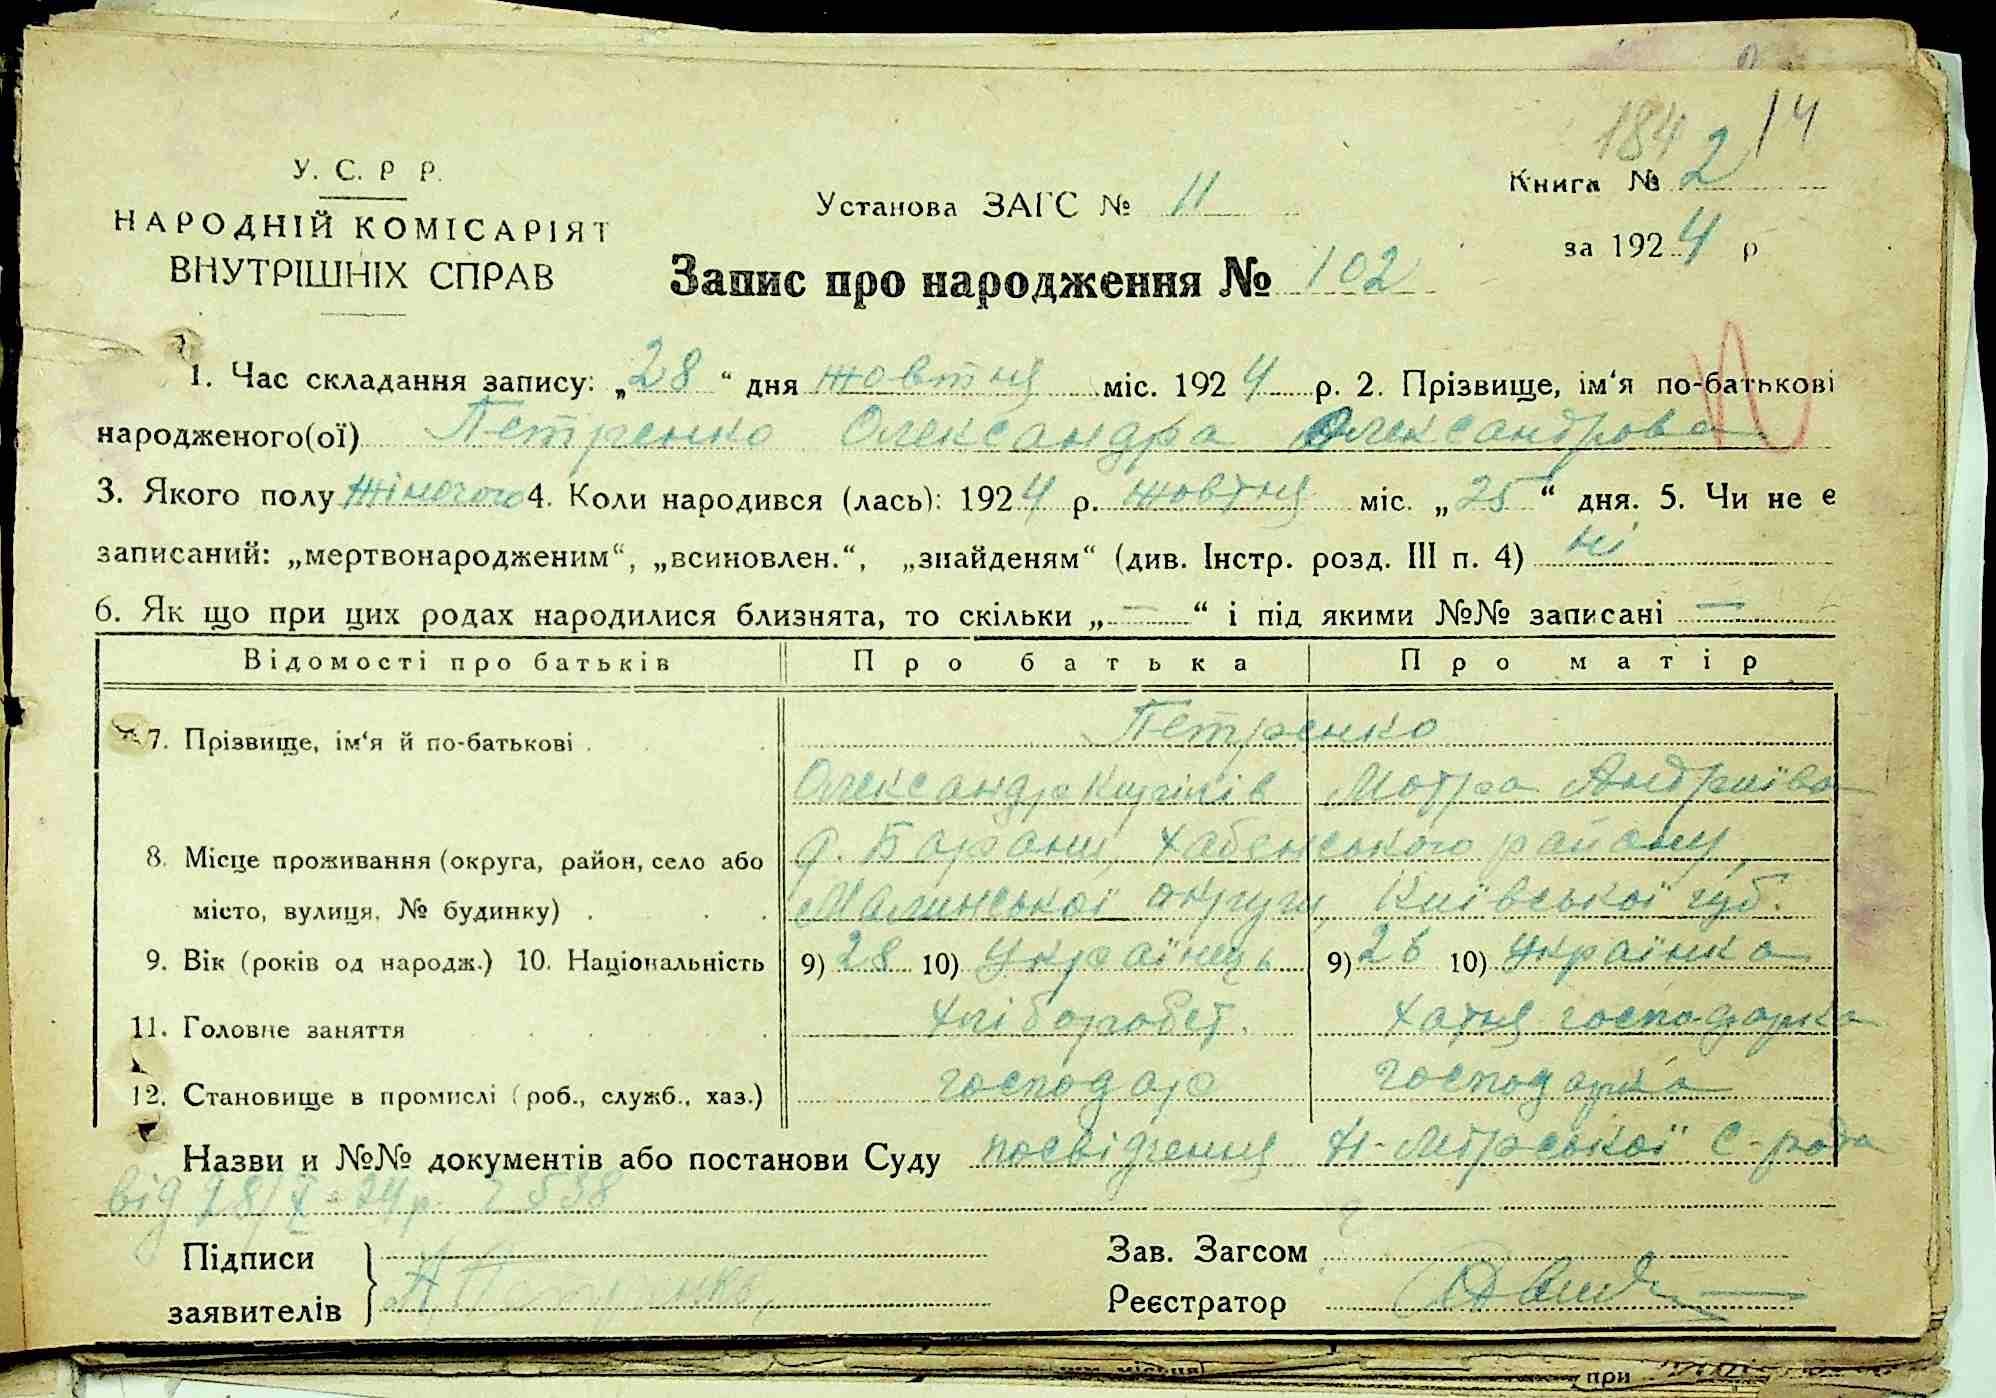 184 2 14
У. С. Р Р.
НАРОДНІЙ КОМІСАРІЯТ
ВНУТРІШНІХ СПРАВ
Установа ЗАГС № 11
Книга № 2
за 1924 р
Запис про народження № 102
1. Час складання запису: „28“ дня жовтня міс. 1924 р. 2. Прізвище, ім‘я по-батькові
народженого(ої) Петренко Олександра Олександрова
3. Якого полу жіночого 4. Коли народився (лась): 1924 р. жовтня міс. „25“ дня. 5. Чи не є
записаний: „мертвонародженим“, „всиновлен.“, „знайденям“ (див. Інстр. розд. III п. 4) ні
6. Як що при цих родах народилися близнята, то скільки „—“ і під якими №№ записані —
Відомості про батьків Про батька Про матір
7. Прізвище, ім‘я й по-батькові . Петренко
Олександр Мотра Андріїва
8. Місце проживання (округа, район, село або Борани, Хабенського району,
місто, вулиця, № будинку) . Малинської округи, Київської губ.
9. Вік (років од народж.) 10. Національність 9) 28 10) Українець 9) 26 10) Українка
11. Головне заняття хлібороб хатня господарка
12. Становище в промислі (роб., служб., хаз.) господар господарка
Назви и №№ документів або постанови Суду посвідчення С-
від 28/X-24р. 538
Підписи
заявителів Петренко
Зав. Загсом
Реєстратор